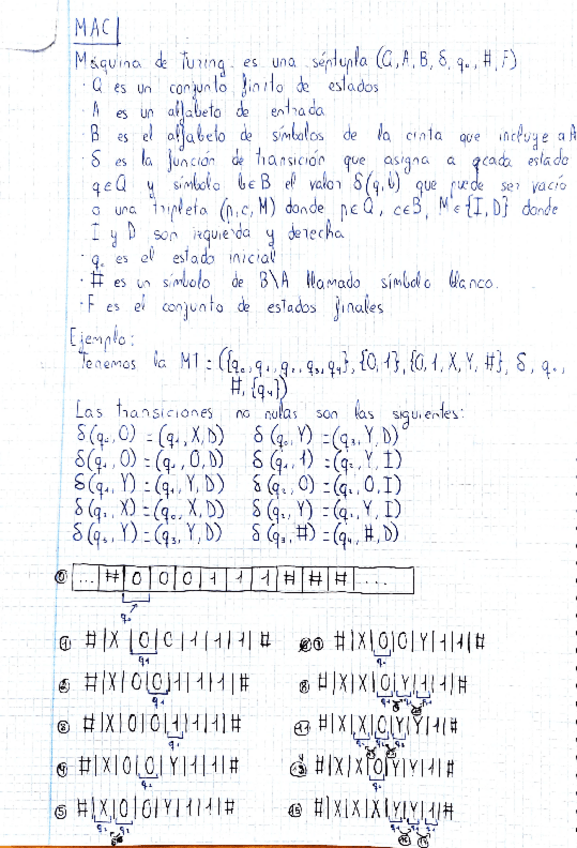 MAC
Máquina de Turing: es una séptupla (Q, A, B, δ, q₀, #, F)
· Q es un conjunto finito de estados
· A es un alfabeto de entrada
· B es el alfabeto de símbolos de la cinta que incluye a A
· δ es la función de transición que asigna a cada estado
q∈Q y símbolo b∈B el valor δ(q,b) que puede ser vacío
o una tripleta (p,c,M) donde p∈Q, c∈B, M∈{I,D} donde
I y D son izquierda y derecha
· q₀ es el estado inicial
· # es un símbolo de B\A llamado símbolo blanco.
· F es el conjunto de estados finales
Ejemplo:
Tenemos la MT = ({q₀,q₁,q₂,q₃,q₄}, {0,1}, {0,1,X,Y,#}, δ, q₀,
#, {q₄})
Las transiciones no nulas son las siguientes:
δ(q₀,0) = (q₁,X,D) δ(q₀,Y) = (q₃,Y,D)
δ(q₁,0) = (q₁,0,D) δ(q₁,1) = (q₂,Y,I)
δ(q₁,Y) = (q₁,Y,D) δ(q₂,0) = (q₂,0,I)
δ(q₂,X) = (q₀,X,D) δ(q₂,Y) = (q₂,Y,I)
δ(q₃,Y) = (q₃,Y,D) δ(q₃,#) = (q₄,#,D)
0 ...|#|0|0|0|1|1|1|#|#|#|....
q₀
1 #|X|0|0|1|1|1|#
q₁
2 #|X|0|0|1|1|1|#
q₁
3 #|X|0|0|1|1|1|#
q₁
4 #|X|0|0|Y|1|1|#
q₂
5 #|X|0|0|Y|1|1|#
q₂ q₂
#|X|0|0|Y|1|1|#
q₀
8 #|X|X|0|Y|1|1|#
q₁
11 #|X|X|0|Y|Y|1|#
#|X|X|0|Y|Y|1|#
q₀
15 #|X|X|X|Y|Y|1|#
q₁ q₁ q₁